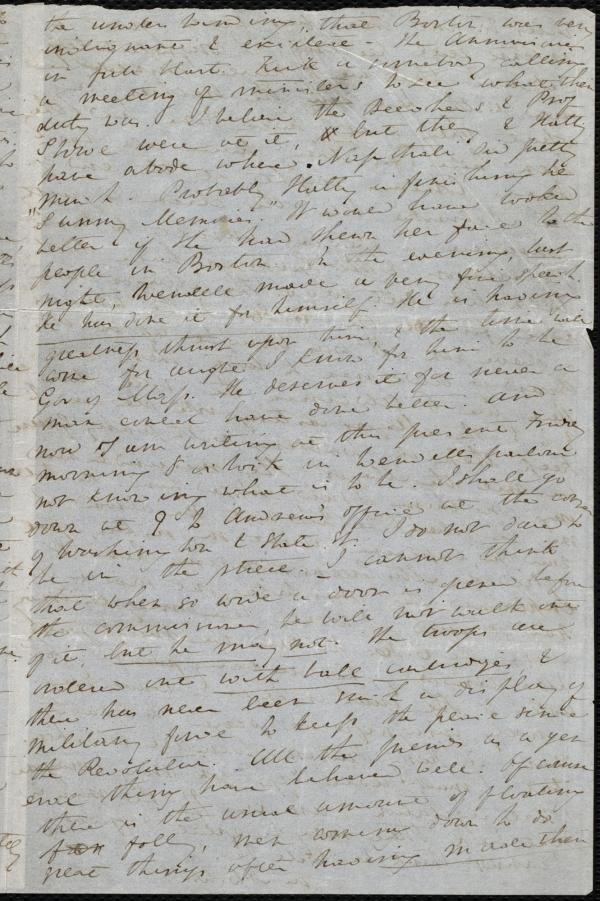 the understanding that Boston was very
indignant & excited - The Commissioner
in full blast. Took a somebody calling
a meeting of ministers to see what their
duty was. I believe the Beechers & Prof
Stowe were at it, & but they & Hatty
have abode where Naphtali did pretty
much. Probably Hatty is finishing her
"Sunny Memories." It would have looked
better if she had shewn her face to the
people in Boston. In the evening, last
night, Wendell made a very fine speech
He has done it for himself. He is having
greatness thrust upon him, & the time will
come for aught I know for him to be
Gov of Mass. He deserves it for never a
man could have done better. And
now I am writing at this present Friday
morning 8 o'clock in Wendell's parlour
not knowing what is to be. I shall go
down at 9 to Andrew's office at the corner
of Washington & State St. I do not dare to
be in the street. I cannot think
that when so wide a door is opened before
the commissioner he will not walk out
of it, but he may not. The troops are
ordered out with ball cartridges &
there has never been such a display of
military force to keep the peace since
the Revolution. All the friends as a gen
eral thing have behaved well. Of course
there is the usual amount of floating
folly, men coming down to do
great things after having made their